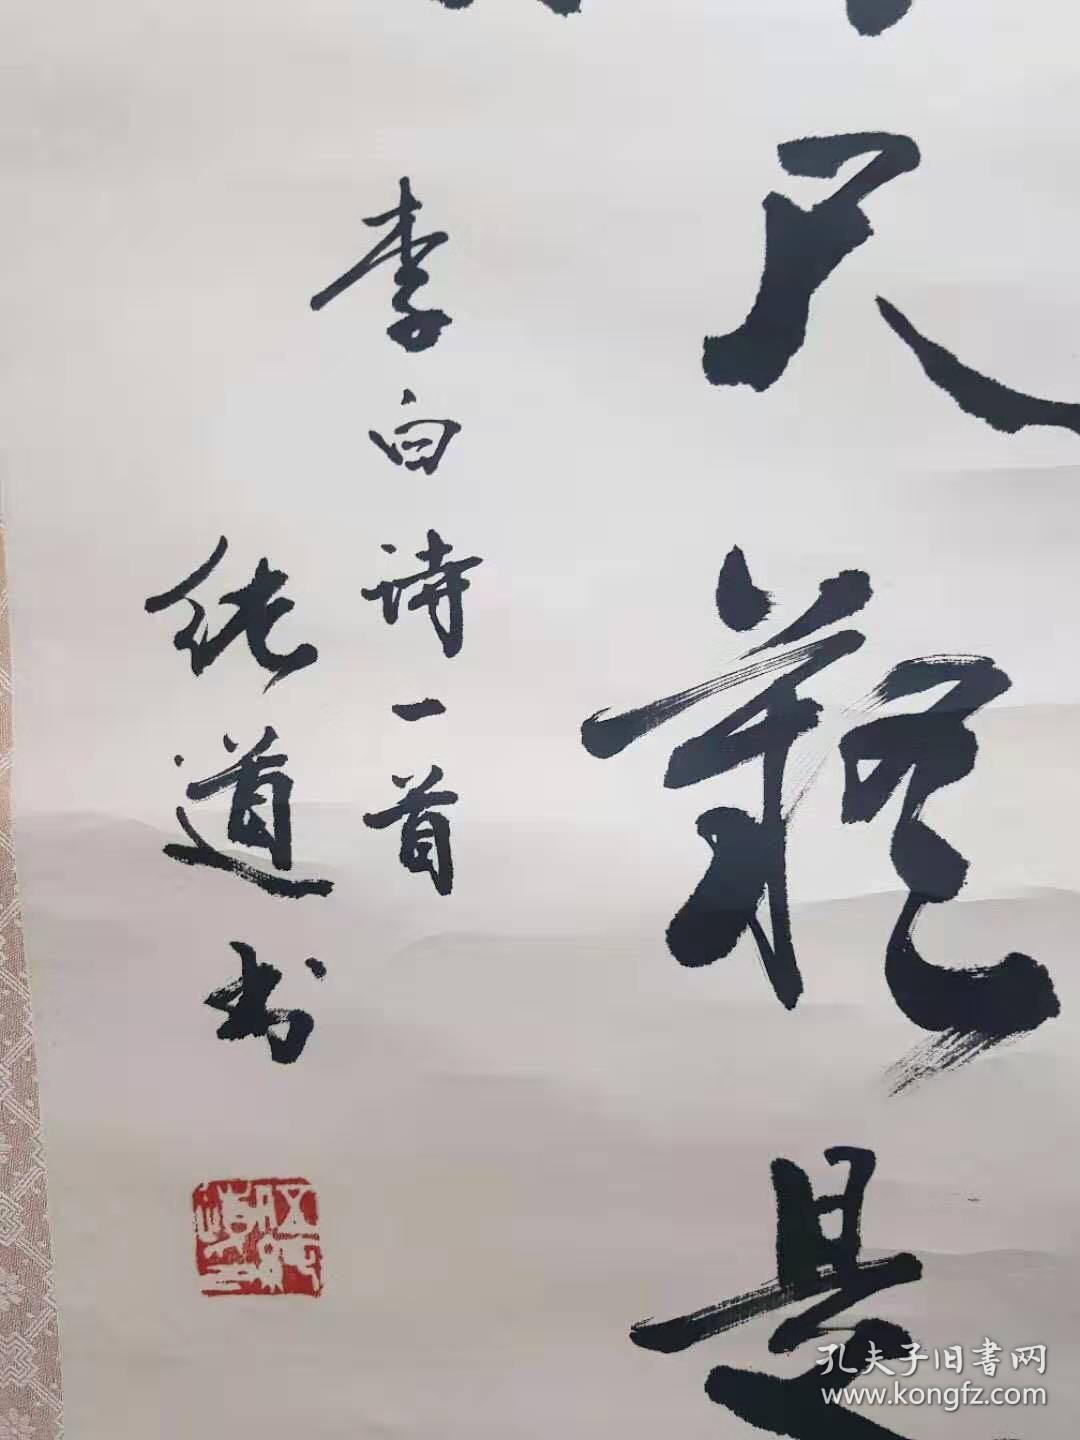 尺疑是
李白诗一首
纯道书
孔夫子旧书网
www.kongfz.com